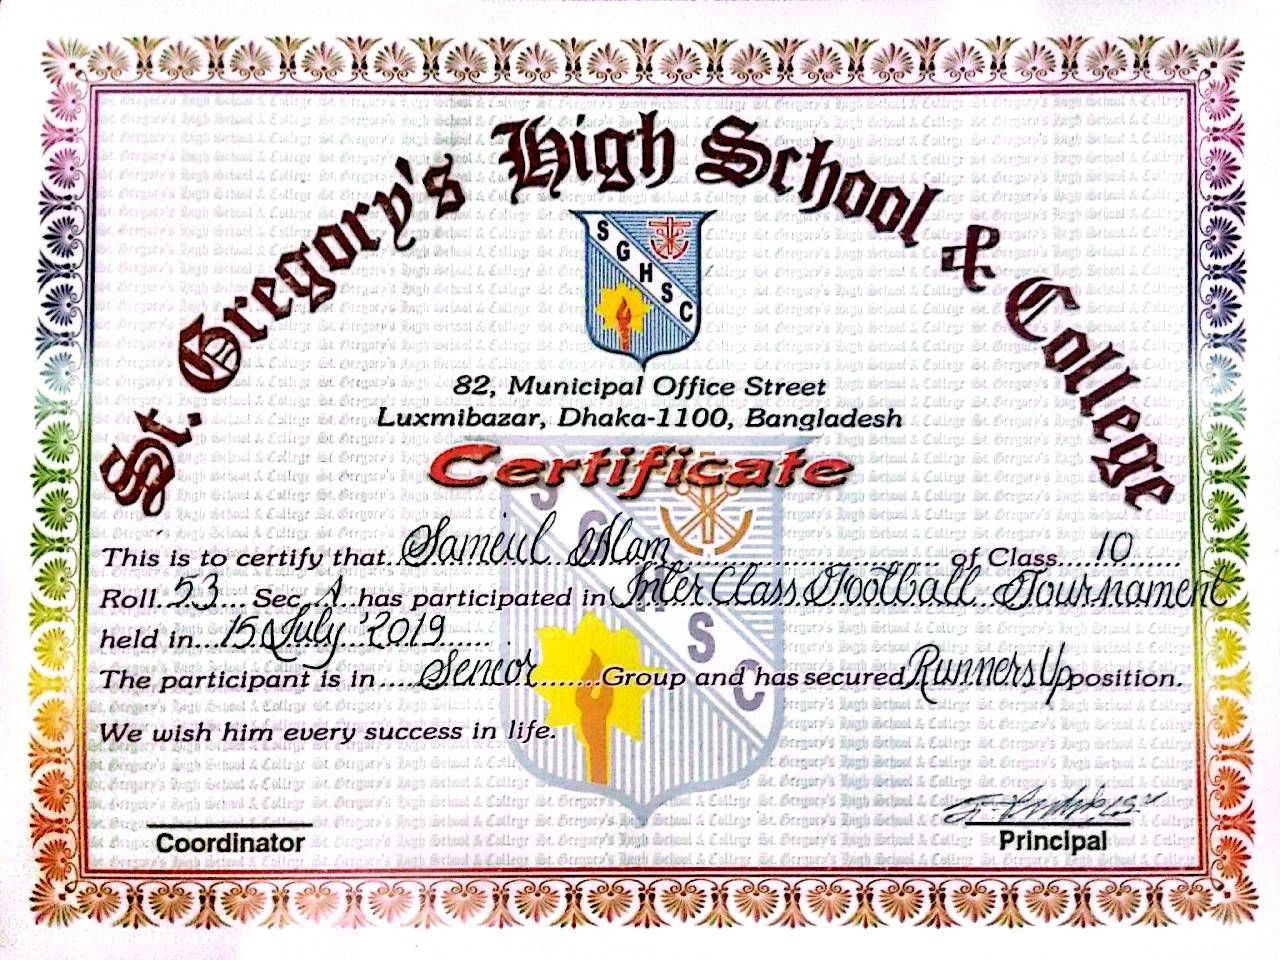 St. Gregory's High School & College
S G H S C
82, Municipal Office Street
Luxmibazar, Dhaka-1100, Bangladesh
Certificate
This is to certify that Sameiul Islam of Class 10
Roll 53 Sec A has participated in Inter Class Football Tournament
held in 15 July '2019
The participant is in Senior Group and has secured Runners Up position.
We wish him every success in life.
Coordinator
Principal